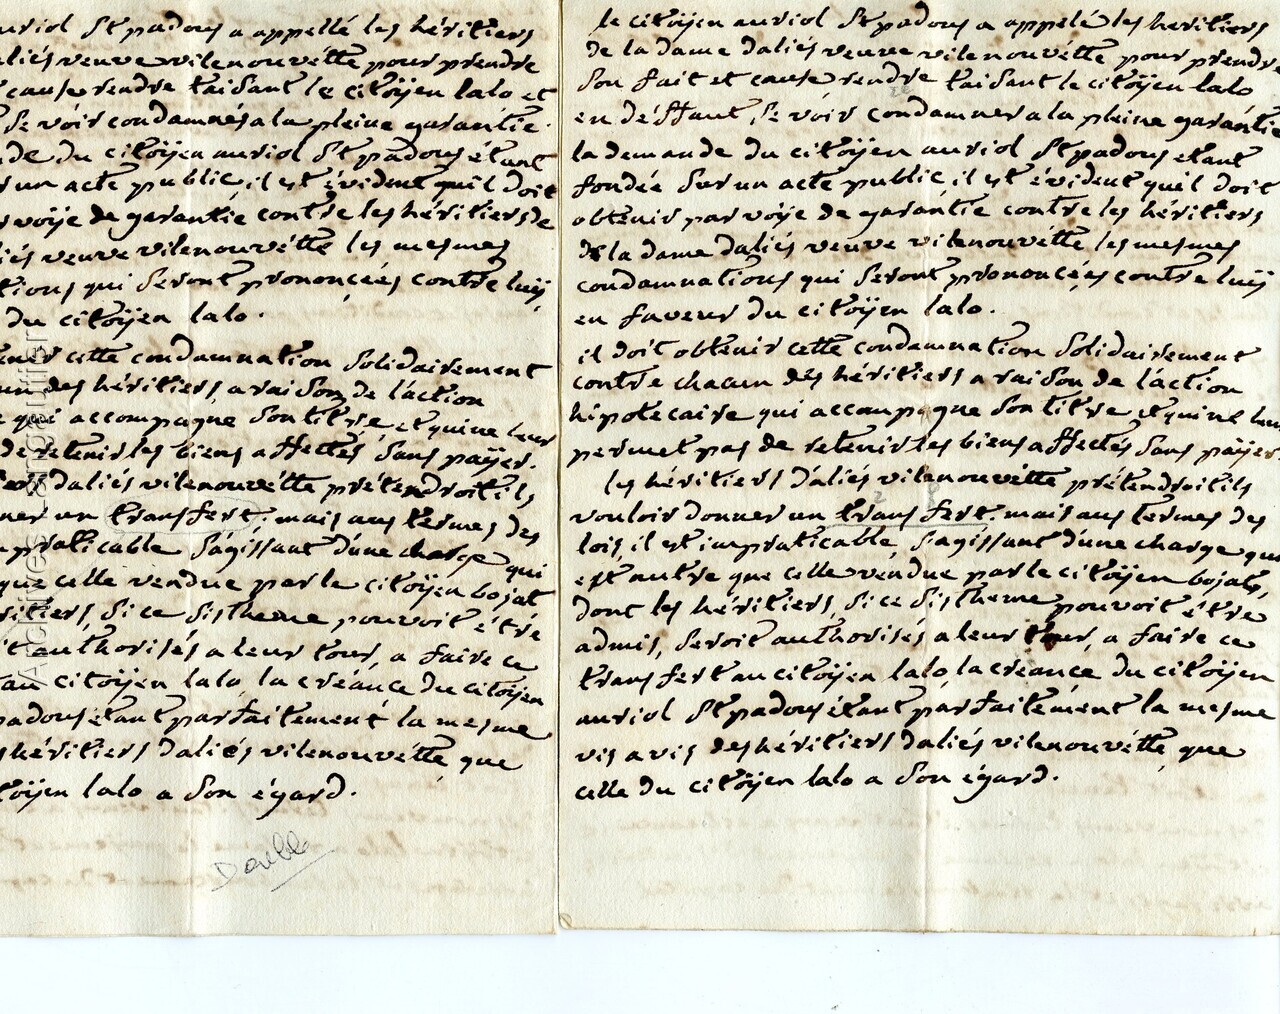 auriol St padous a appellé les héritiers
daliés veuve vilenouvétte pour prendre
cause rendre taisant le citoÿen lalo et
Se voir condamnés a la pleine garantie.
de du citoÿen auriol St padous étant
sur un acte public, il est évident quil doit
voÿe de garantie contre les héritiers de
daliés veuve vilenouvétte les mesmes
tions qui Seront prononcées contre luÿ
du citoÿen lalo.
cette condamnation Solidairement
un des héritiers, a raison de l'action
qui accompagne Son titre, et qui ne leur
de retenir les biens affectés Sans païer.
daliés vilenouvétte prétendroit ils
un transfert, mais aus termes des
praticable S'agissant d'une charge qui
que celle vendue par le citoÿen bojat
Si ce Sistheme pouvoit étré
authorisés a leur tour, a faire ce
au citoÿen lalo, la créance du citoÿen
padous étant parfaitement la mesme
héritiers daliés vilenouvétte que
toÿen lalo a Son égard.
Double
Archives
le citoÿen auriol St padous a appelé les héritiers
de la dame daliés veuve vilenouvétte pour prendre
Son fait et cause rendre taisant le citoÿen lalo
en déffaut, Se voir condamner a la pleine garantie
la demande du citoÿen auriol St padous etant
fondée Sur un acte public, il est évident quil doit
obtenir par voÿe de garantie contre les héritiers
de la dame daliés veuve vilenouvétte les mesmes
condamnations qui Seront prononcées contre luÿ
en faveur du citoÿen lalo.
il doit obtenir cette condamnation Solidairement
contre chacun des héritiers a raison de l'action
hipotécaire qui accompagne Son titre et qui ne leur
permet pas de retenir les biens affectés Sans païer
les héritiers daliés vilenouvétte prétendroit ils
vouloir donner un transfert, mais aus termes des
lois, il est impraticable, S'agissant d'une charge qui
est autre que celle vendue par le citoÿen bojat,
dont les héritiers, Si ce Sistheme pouvoit étré
admis, Seroit authorisés a leur tour, a faire ce
transfert au citoÿen lalo, la créance du citoÿen
auriol St padous étant parfaitement la mesme
vis a vis des héritiers daliés vilenouvétte, que
celle du citoÿen lalo a Son égard.